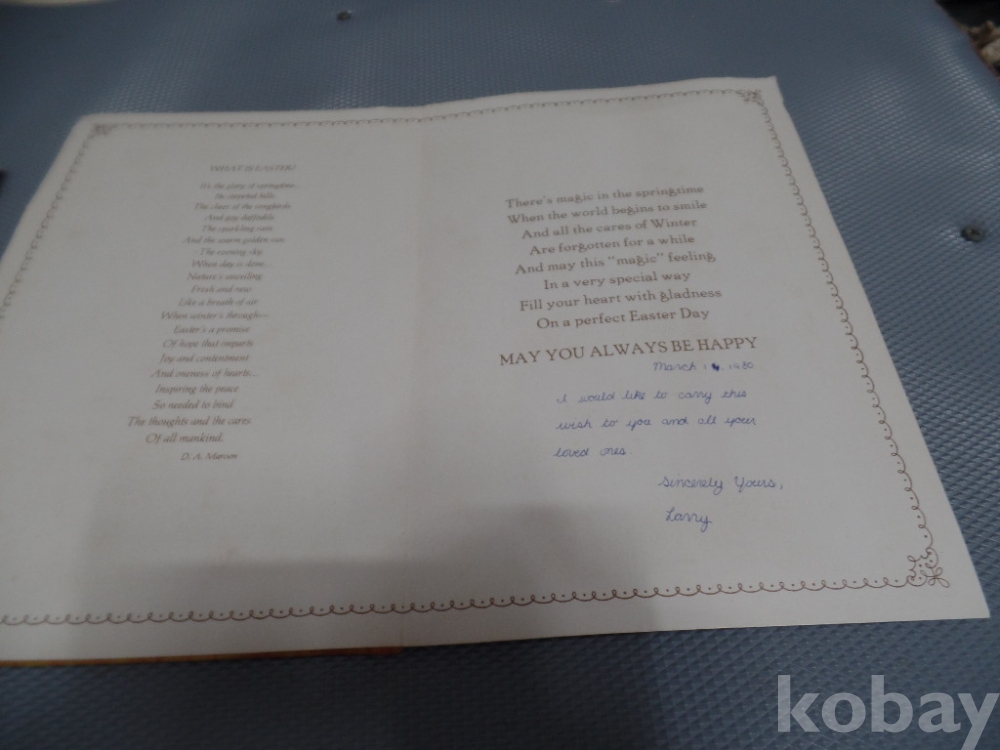 WHAT IS EASTER?
It's the glory of springtime...
The hills
The cheer of the songbirds
And gay daffodils
The sparkling rain
And the warm golden sun
The evening sky
When day is done...
Nature's unending
Fresh and new
Like a breath of air
When winter's through—
Easter's a promise
Of hope that imparts
Joy and contentment
And oneness of hearts...
Inspiring the peace
So needed to bind
The thoughts and the cares
Of all mankind.
D. A.
There's magic in the springtime
When the world begins to smile
And all the cares of Winter
Are forgotten for a while
And may this "magic" feeling
In a very special way
Fill your heart with gladness
On a perfect Easter Day
MAY YOU ALWAYS BE HAPPY
March 1980
I would like to carry this
wish to you and all your
loved ones.
Sincerely Yours,
Larry.
kobay